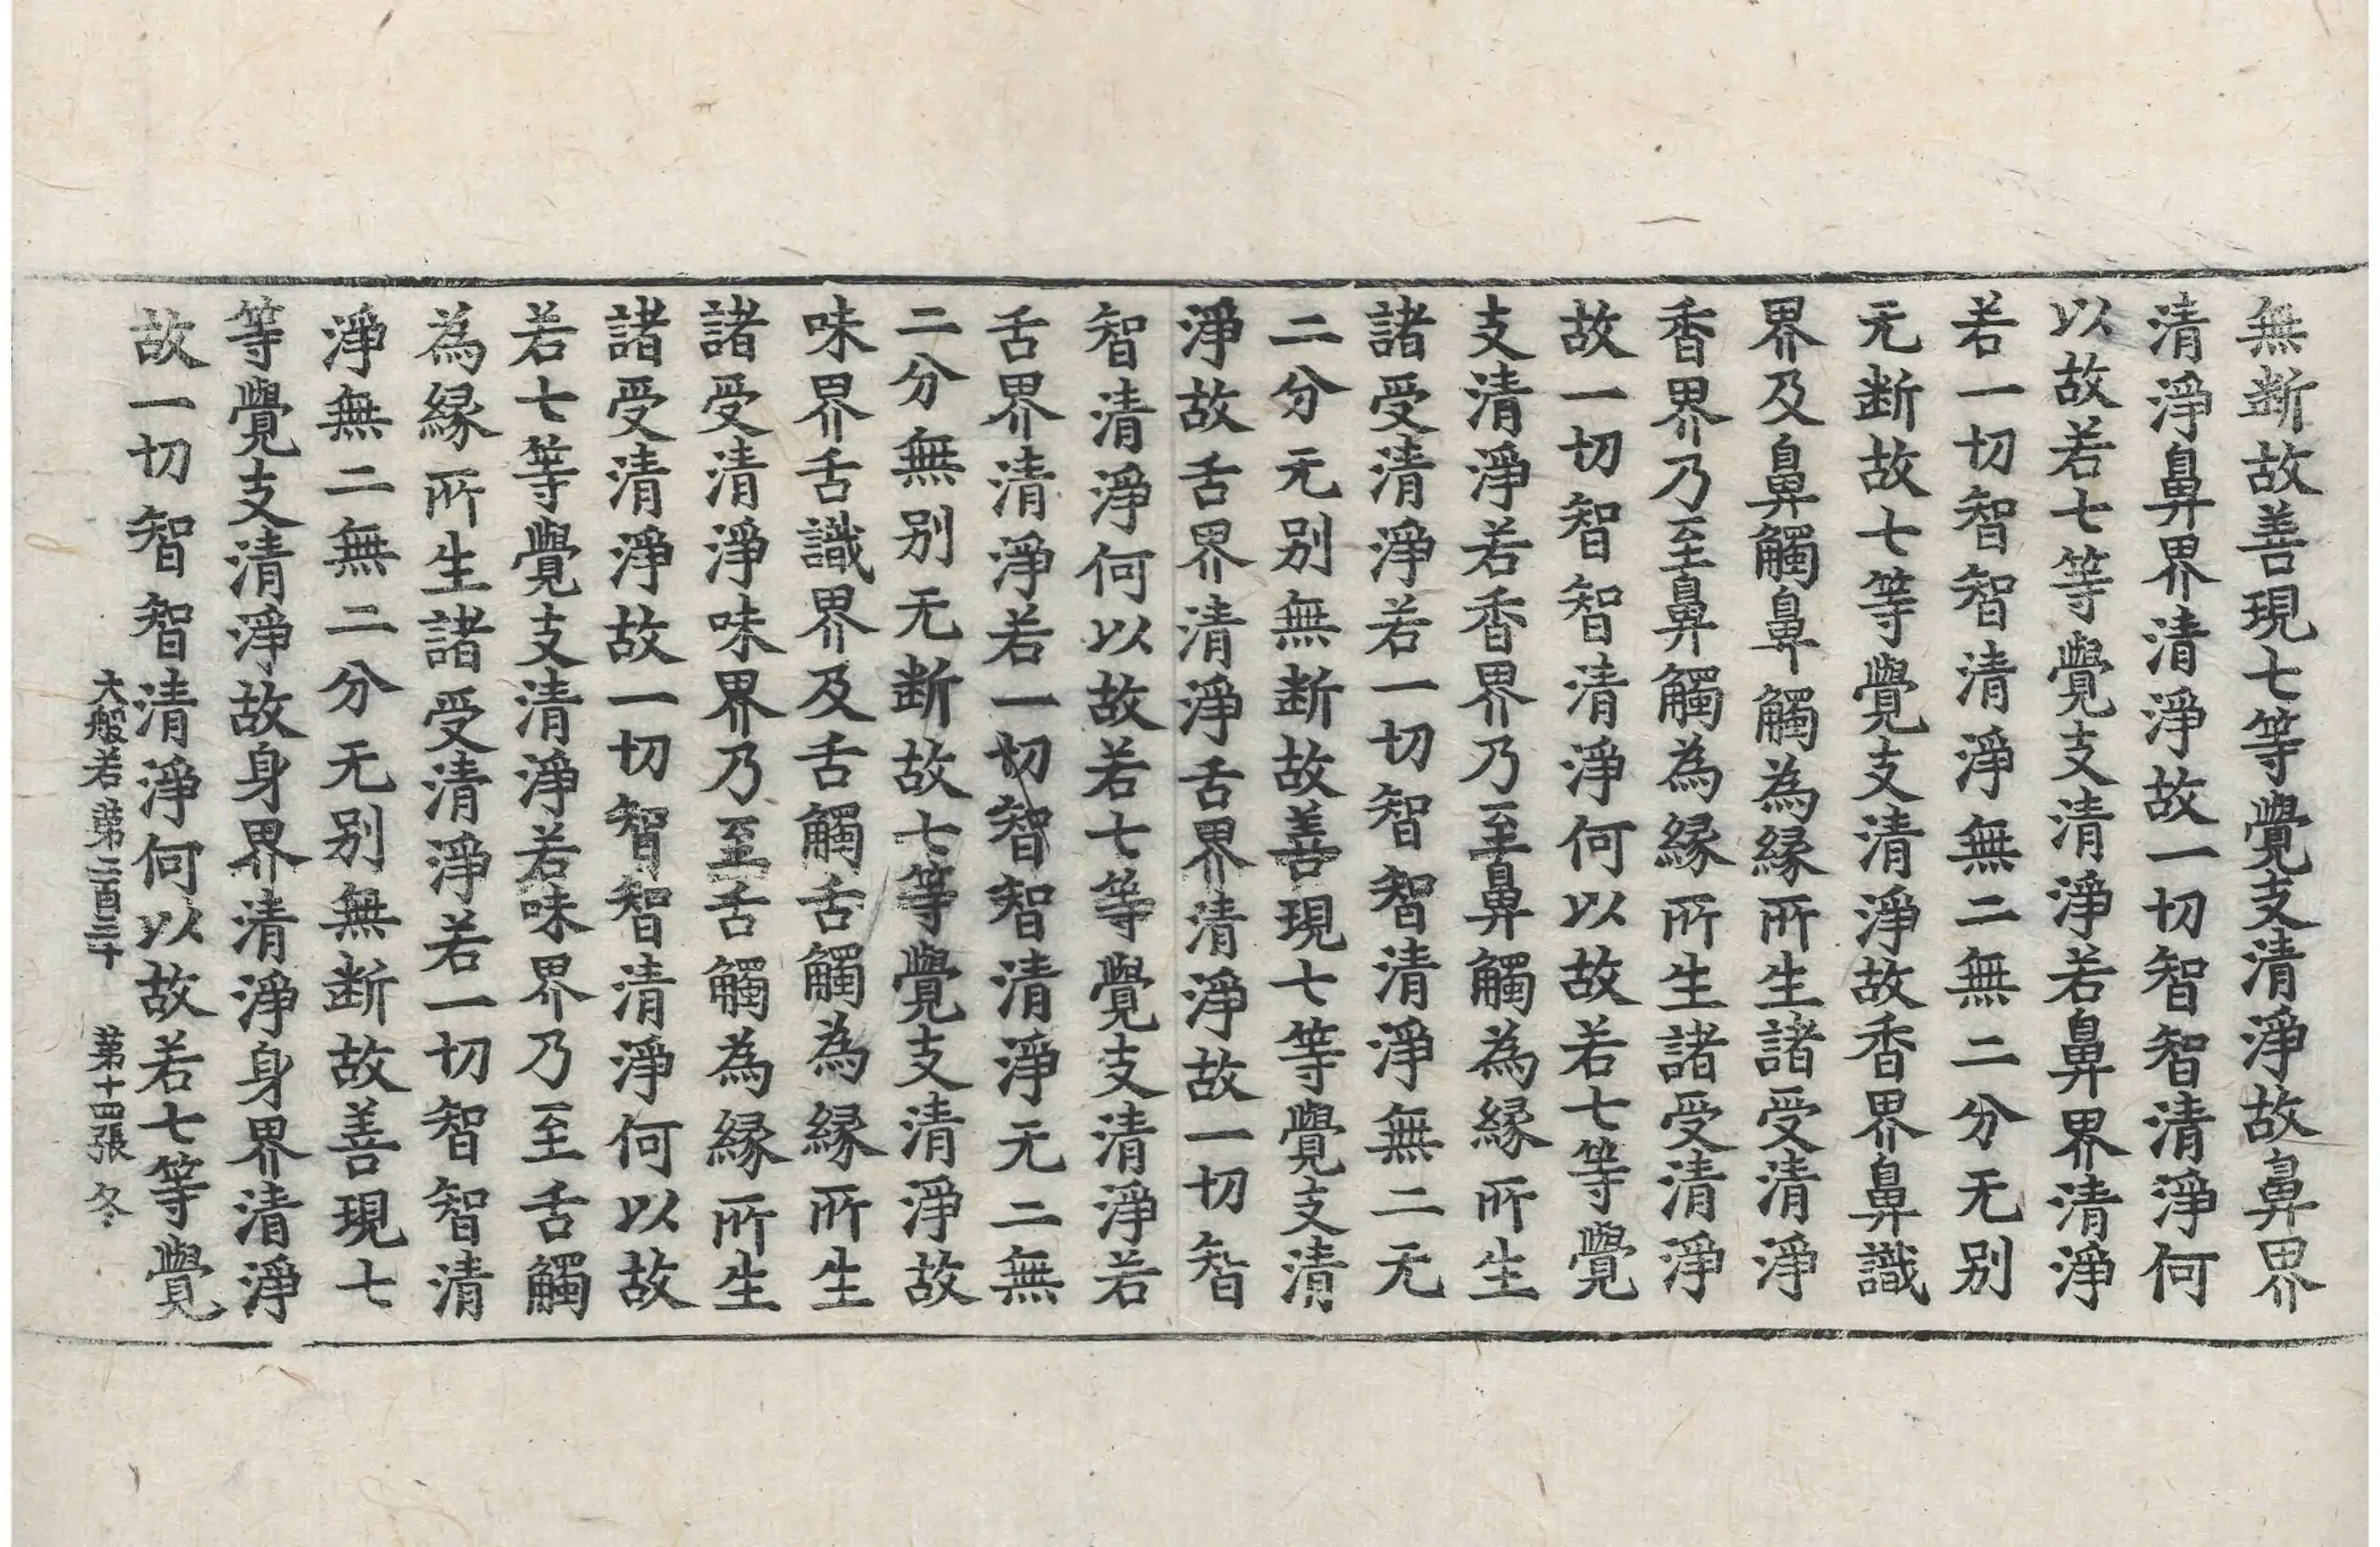 無断故善現七等覺支清淨故鼻界
清淨鼻界清淨故一切智智清淨何
以故若七等覺支清淨若鼻界清淨
若一切智智清淨無二無二分无別
无断故七等覺支清淨故香界鼻識
界及鼻觸鼻觸為縁所生諸受清淨
香界乃至鼻觸為縁所生諸受清淨
故一切智智清淨何以故若七等覺
支清淨若香界乃至鼻觸為縁所生
諸受清淨若一切智智清淨無二无
二分无別無断故善現七等覺支清
淨故舌界清淨舌界清淨故一切智
智清淨何以故若七等覺支清淨若
舌界清淨若一切智智清淨无二無
二分無別无断故七等覺支清淨故
味界舌識界及舌觸舌觸為縁所生
諸受清淨味界乃至舌觸為縁所生
諸受清淨故一切智智清淨何以故
若七等覺支清淨若味界乃至舌觸
為縁所生諸受清淨若一切智智清
淨無二無二分无別無断故善現七
等覺支清淨故身界清淨身界清淨
故一切智智清淨何以故若七等覺
大般若第二百三十 第十四張 冬